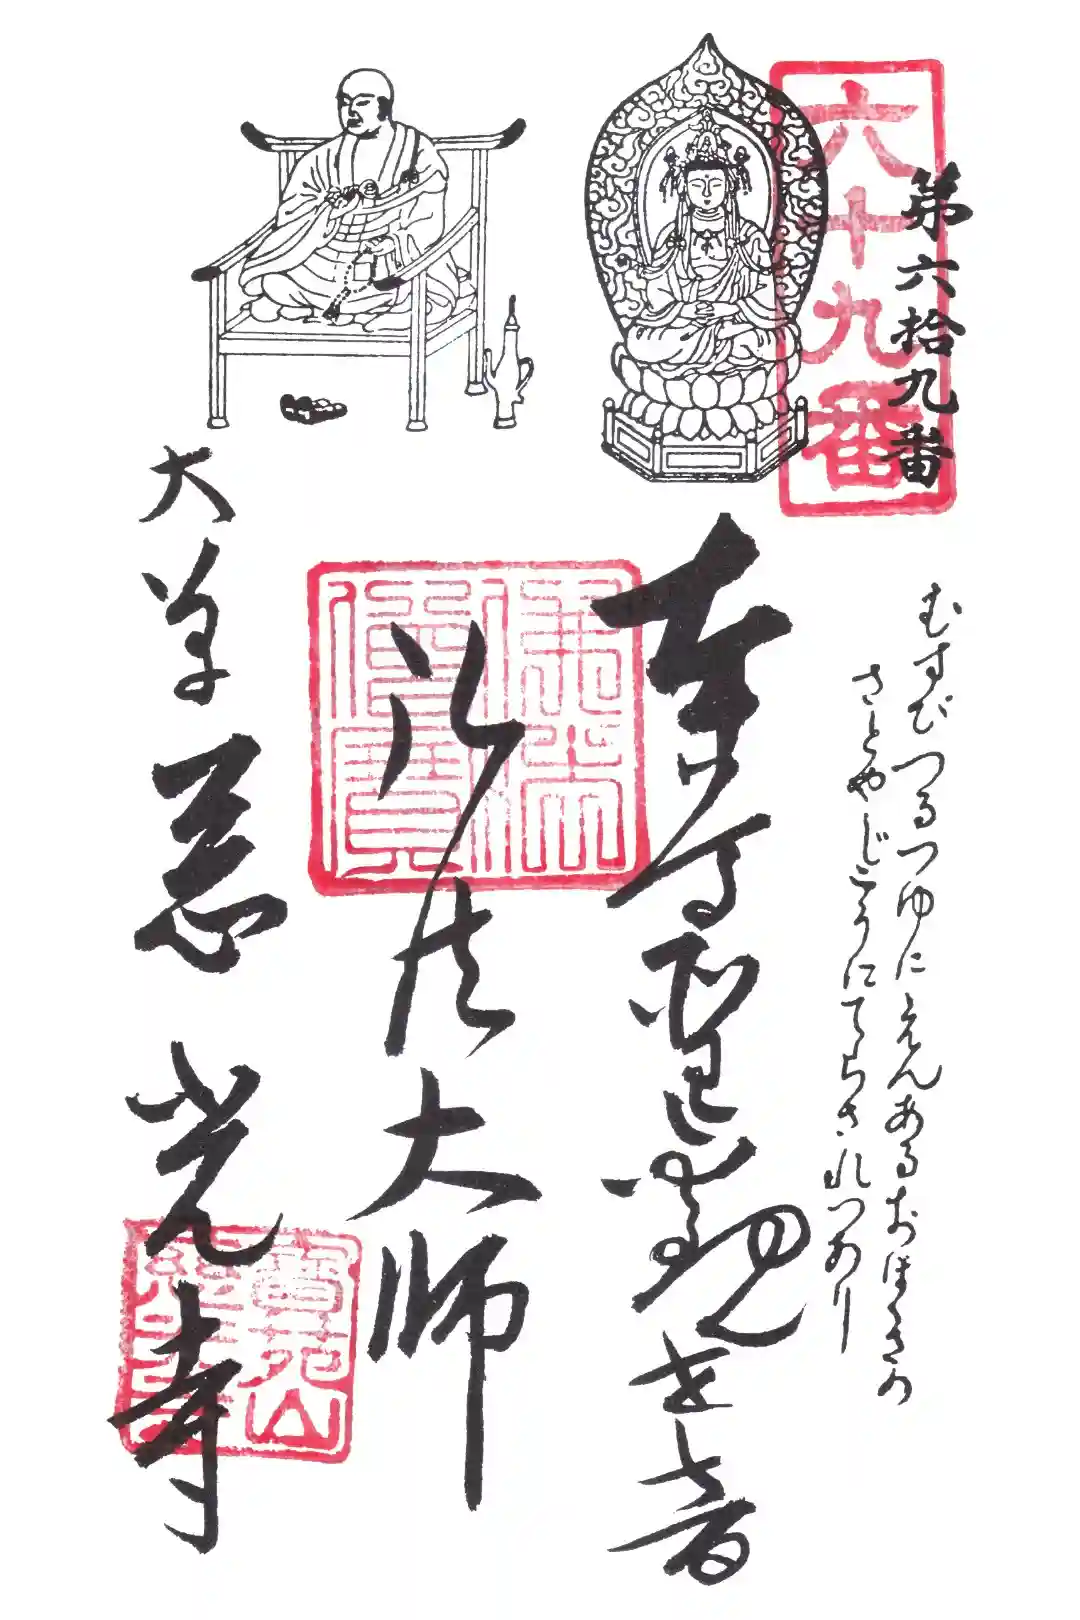 六十九番
第六拾九番
むすびつるつゆにえんあるおほくさの
さとやじこうにてらされつあり
奉写聖観世音
弘法大師
大草慈光寺
佛法僧寶
寶苑山慈光寺